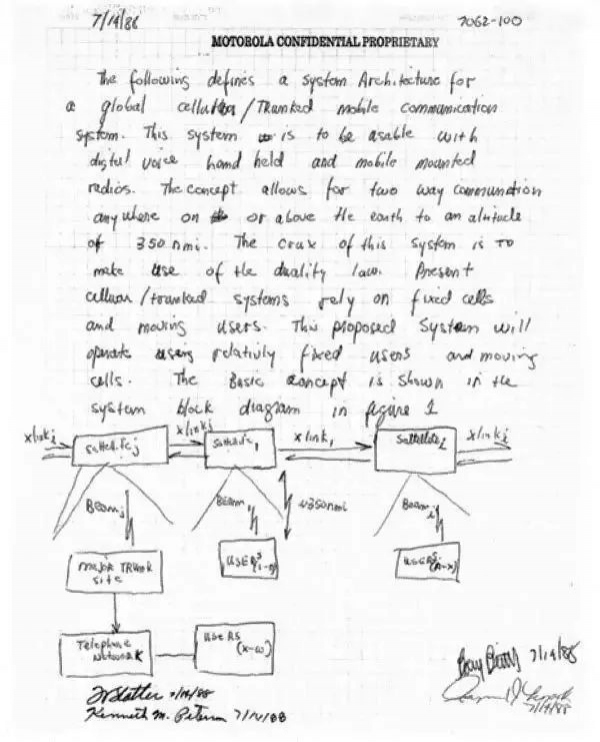 7/14/88 7062-100
MOTOROLA CONFIDENTIAL PROPRIETARY
The following defines a system Architecture for
a global cellular/Trunked mobile communication
system. This system is to be usable with
digital voice hand held and mobile mounted
radios. The concept allows for two way communtion
any where on or above the earth to an altitude
of 350 nmi. The crux of this system is to
make use of the duality law. Present
celluar/trunked systems rely on fixed cells
and moving users. This proposed System will
operate using relativly fixed users and moving
cells. The Basic concept is shown in the
system block diagram in figure 1
xlinki xlinkj xlink1 xlinki
Satellitej Satellite1 Satellitei
Beamj Beam1 ~350nmi Beami
Major TRunk
site
USERS(1-n) USERS(n-x)
Telephone
Network
USERS
(x-w)
Bary Bertiger 7/14/88
7/14/88
Kenneth M. Peterson 7/14/88
7/14/88